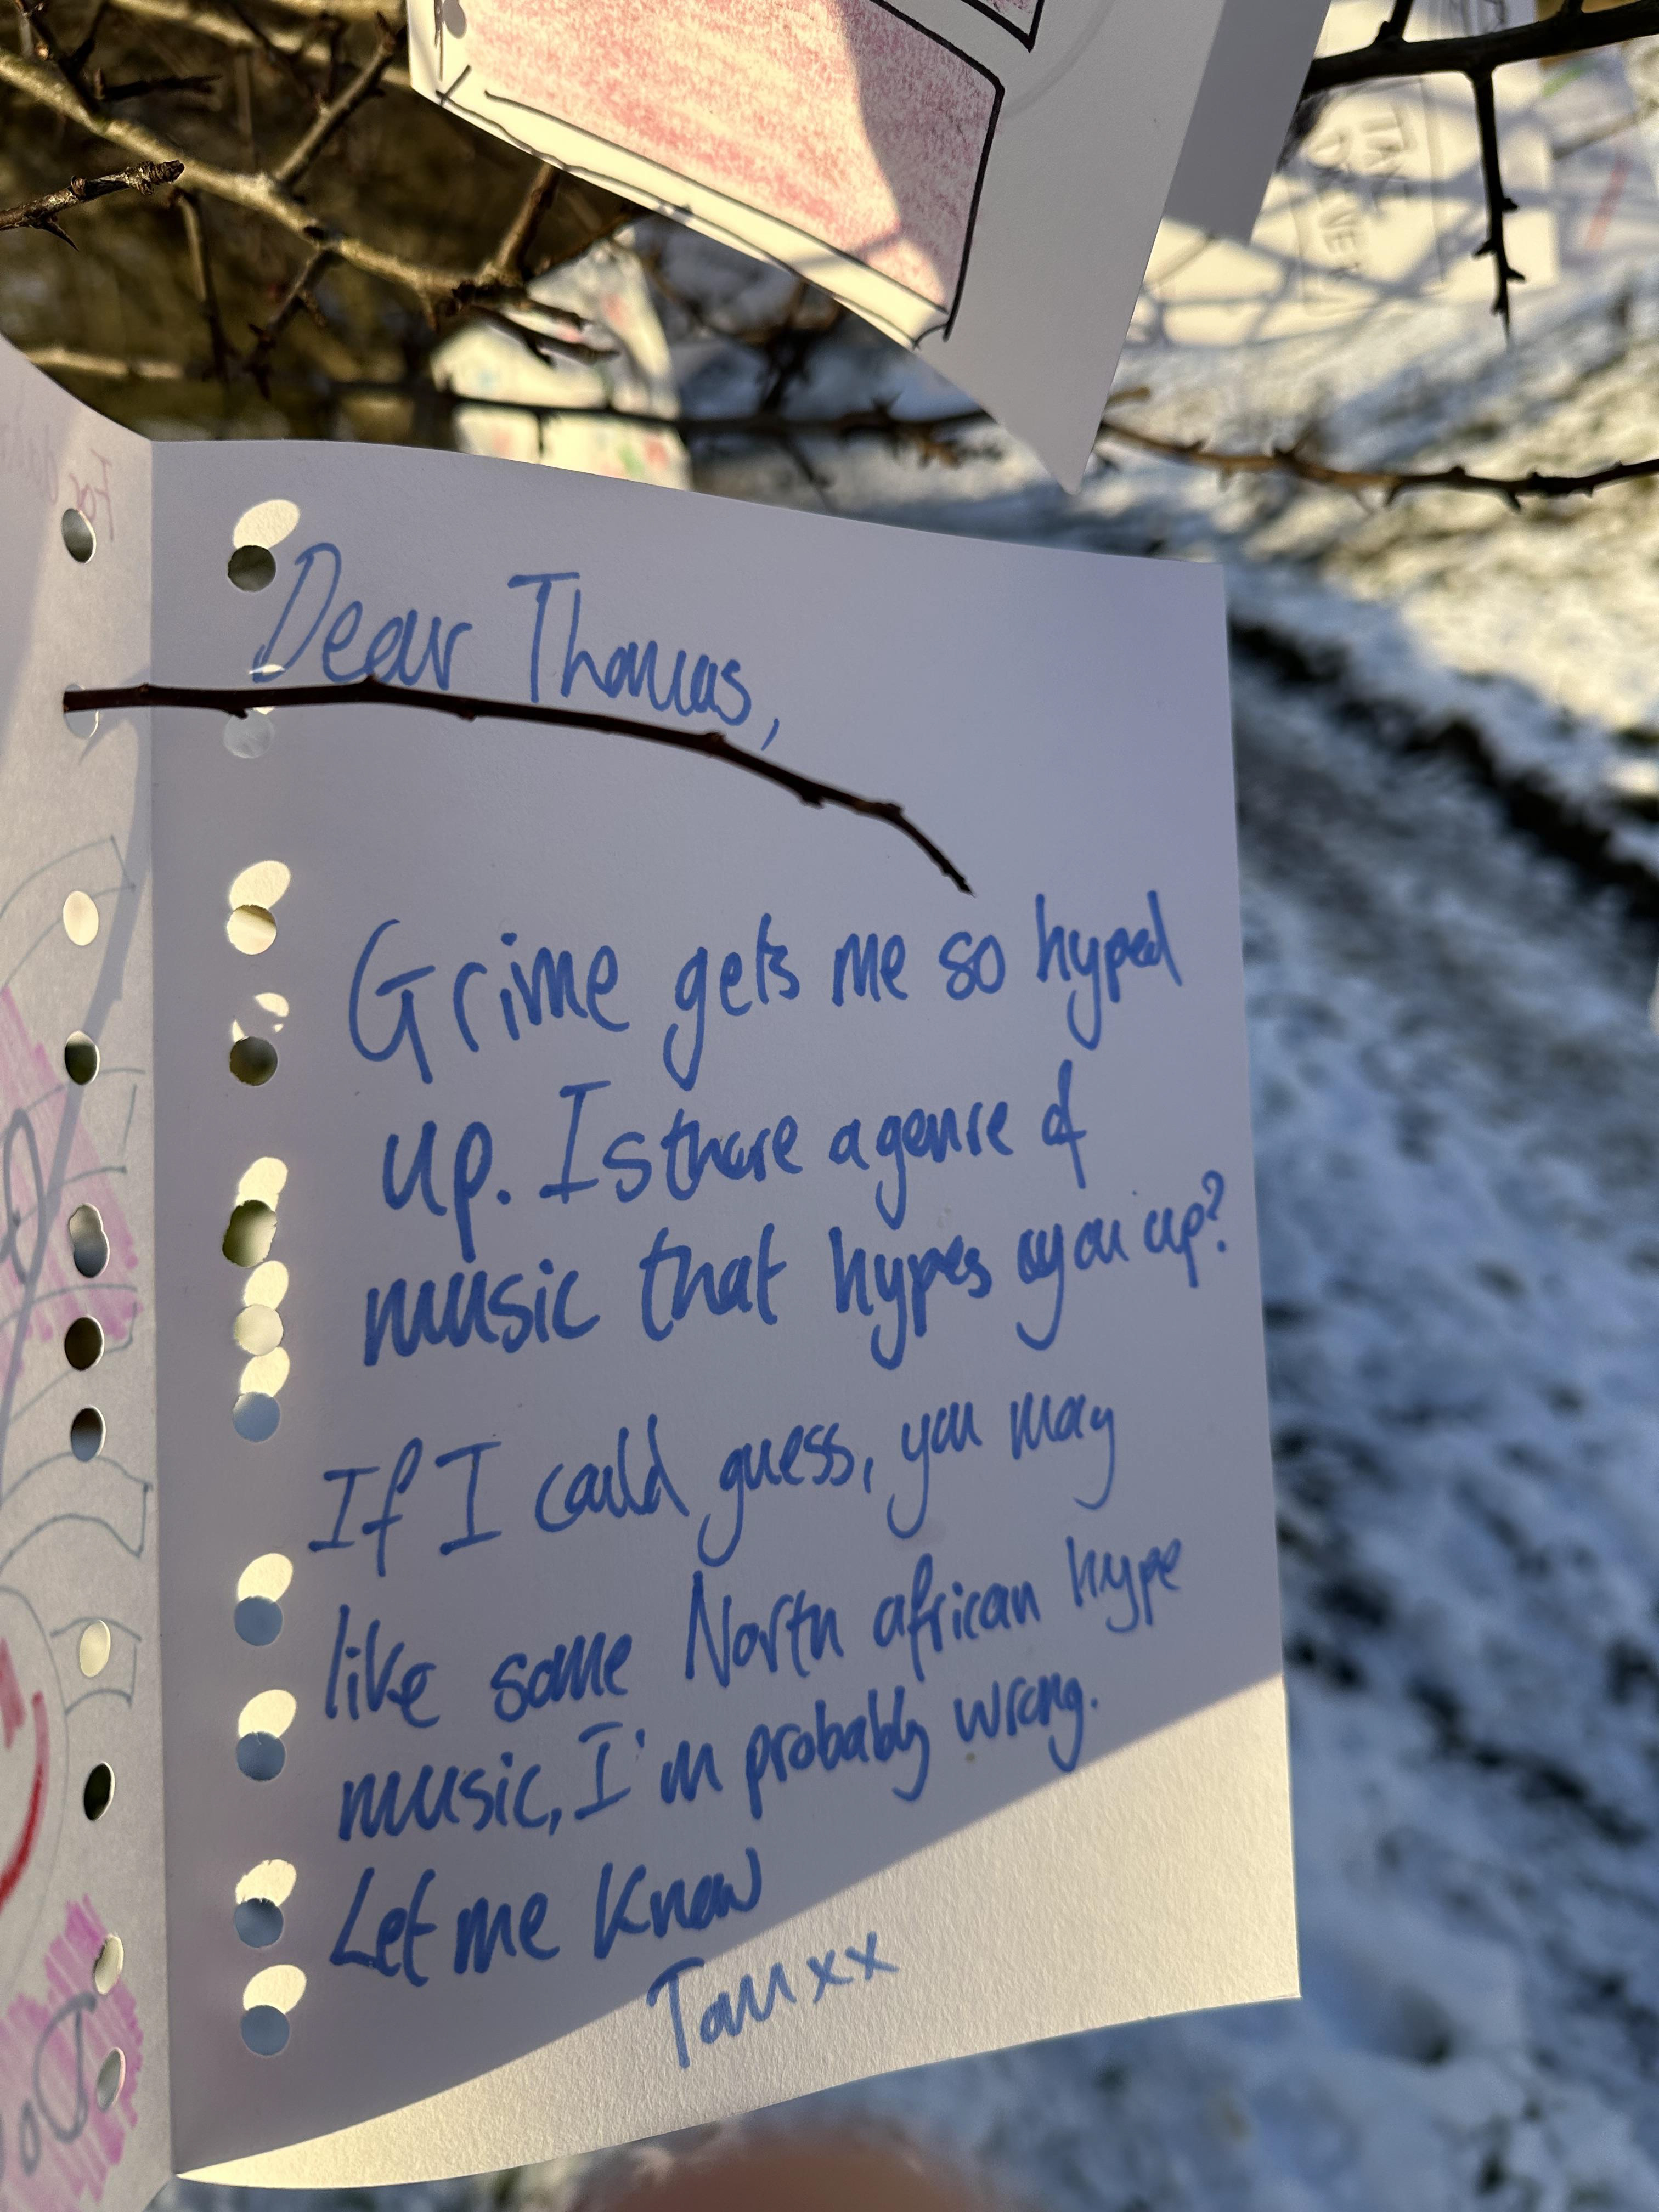 TAKE
For
Dear Thomas,
Grime gets me so hyped
up. Is there a genre of
music that hypes you up?
If I could guess, you may
like some North african hype
music, I'm probably wrong.
Let me know
Tom xx